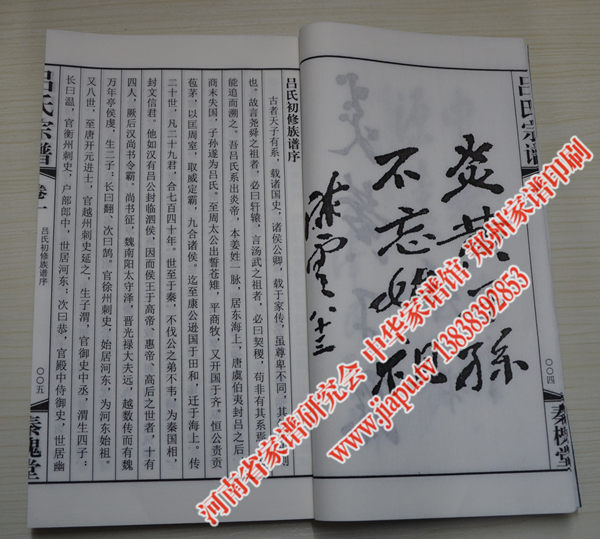 吕氏宗谱
〇〇四
秦槐堂
炎黄子孙
不忘始祖
陈云 八十三
吕氏初修族谱序
古者天子有系，载诸国史，诸侯公卿，载于家传，虽尊卑不同，其
也。故言尧舜之祖者，必曰轩辕，言汤武之祖者，必曰契稷，苟非有其系焉
能追而溯之。吾吕氏系出炎帝，本姜姓一脉，居东海上，唐虞伯夷封吕之后
商末失国，子孙遂为吕氏。至周太公出誓苍雉，平商牧，又开国于齐。恒公责贡
苞茅，以匡周室，取威定霸，九合诸侯。迄至康公逊国于田和，迁于海上。传
二十世，凡二十九君，合七百四十年。世至于秦，不伐公之弟不韦，为秦国相，
封文信君。他如汉有吕公封临泗侯，因而侯王于高帝、惠帝、高后之世者，十有
四人，厥后汉尚书令霸，尚书征，魏南阳太守泽，晋光禄大夫远，越数传而有魏
万年亭侯虔，生二子：长曰翻、次曰鹄。官徐州刺史，始居河东，为河东始祖。
又八世，至唐开元进士，官越州刺史延之，生子渭，官御史中丞，渭生四子：
长曰温，官衡州刺史，户部郎中，世居河东；次曰恭，官殿中侍御史，世居幽
吕氏宗谱
卷一
吕氏初修族谱序
〇〇五
秦槐堂
河南省家谱研究会 中华家谱馆 郑州家谱印刷
www.jiapu.tv 13838392853